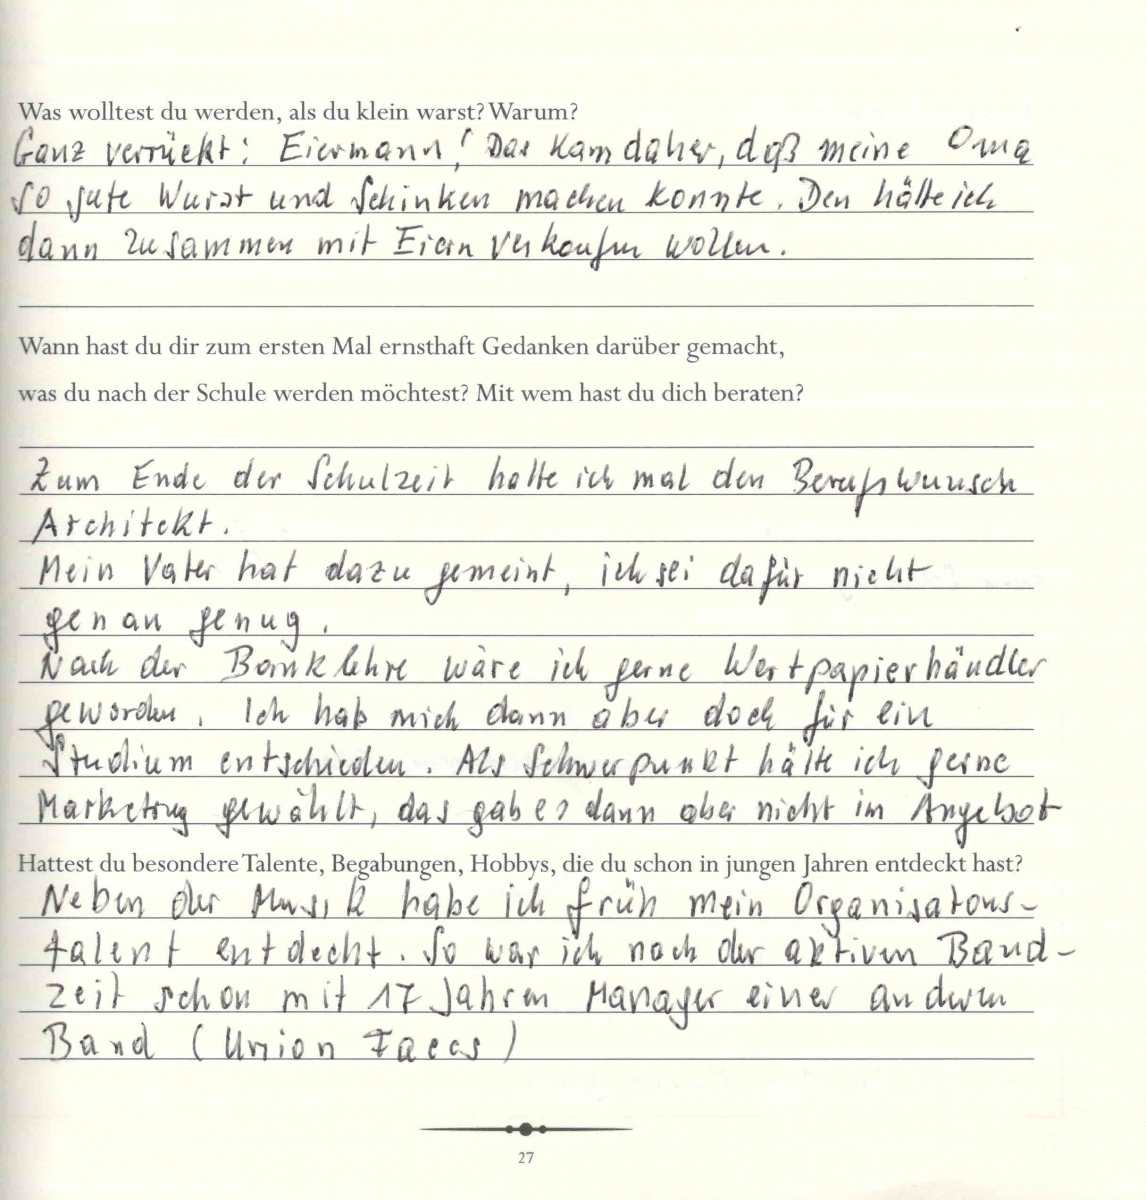 Was wolltest du werden, als du klein warst? Warum?
Ganz verrückt: Eiermann! Das kam daher, daß meine Oma
so gute Wurst und Schinken machen konnte. Den hätte ich
dann zusammen mit Eiern verkaufen wollen.
Wann hast du dir zum ersten Mal ernsthaft Gedanken darüber gemacht,
was du nach der Schule werden möchtest? Mit wem hast du dich beraten?
Zum Ende der Schulzeit hatte ich mal den Berufswunsch
Architekt.
Mein Vater hat dazu gemeint, ich sei dafür nicht
genau genug.
Nach der Banklehre wäre ich gerne Wertpapierhändler
geworden. Ich hab mich dann aber doch für ein
Studium entschieden. Als Schwerpunkt hätte ich gerne
Marketing gewählt, das gab es dann aber nicht im Angebot
Hattest du besondere Talente, Begabungen, Hobbys, die du schon in jungen Jahren entdeckt hast?
Neben der Musik habe ich früh mein Organisatons-
talent entdecht. So war ich nach der aktiven Band-
zeit schon mit 17 Jahren Manager einer anderen
Band (Union Faces)
27